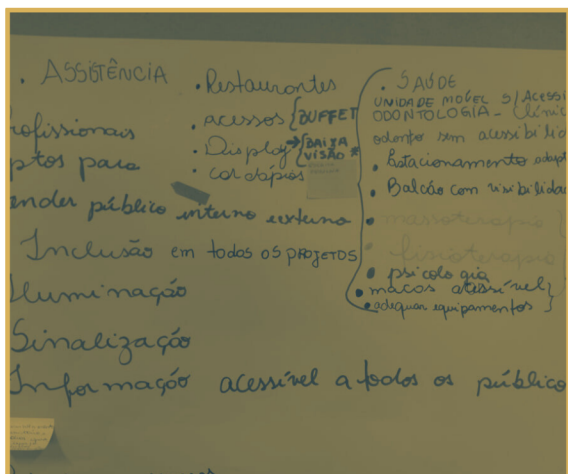 . ASSISTÊNCIA
ofissionais
ptos para
ender público interno externo
Inclusão em todos os PROJETOS
Iluminação
Sinalização
Informação acessível a todos os público
• Restaurantes
• acessos { BUFFET
• Display → { BAIXA VISÃO *
• cardápios
. SAÚDE
UNIDADE MOVEL S/ ACESSI
ODONTOLOGIA - Clínic
odonto sem acessibilid
• Estacionamento adapt
• Balcão com visibilidad
• massoterapia }
• fisioterapia }
• psicologia
• macas acessível }
• adequar equipamentos }